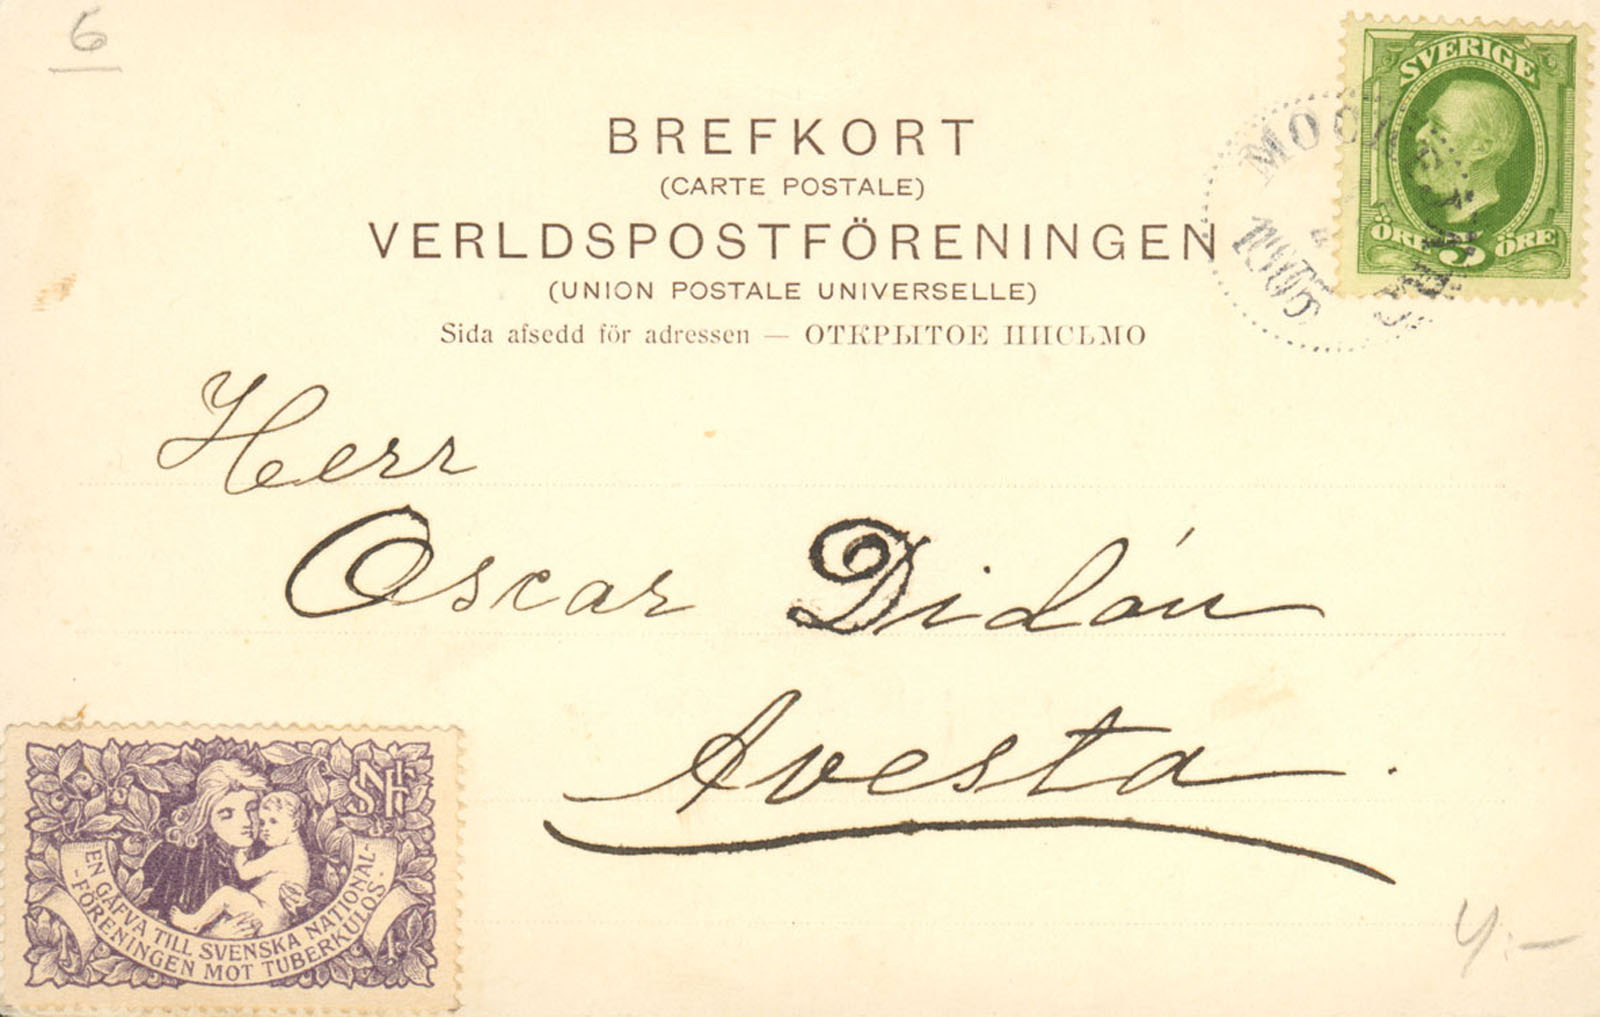 6
SVERIGE
ÖRE 5 ÖRE
1905
BREFKORT
(CARTE POSTALE)
VERLDSPOSTFÖRENINGEN
(UNION POSTALE UNIVERSELLE)
Sida afsedd för adressen — ОТКРЫТОЕ ПИСЬМО
Herr
Oscar Didón
Avesta.
SNF
EN GÅFVA TILL SVENSKA NATIONAL-
-FÖRENINGEN MOT TUBERKULOS-